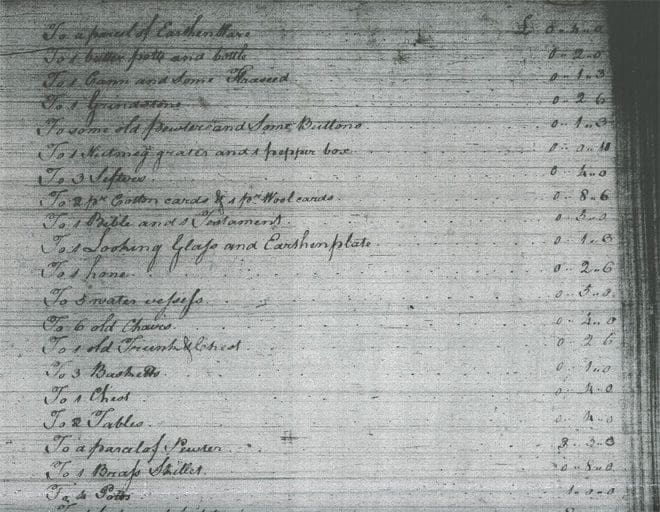 To a parcel of Earthen Ware £ 0..4..0
To 1 butter pott and bottle 0..2..0
To 1 Cann and Some Flaxseed 0..1..3
To 1 Grindstone 0..2..6
To some old Pewter and Some Buttons 0..1..3
To 1 Nutmeg grater and 1 pepper box 0..0..10
To 3 Sifters 0..4..0
To 2 pr Cotton cards & 1 pr Wool cards 0..8..6
To 1 Bible and 1 Testament 0..5..0
To 1 Looking Glass and Earthen plate 0..1..3
To 1 hone 0..2..6
To 5 water vessels 0..5..0
To 6 old Chairs 0..4..0
To 1 old Trunk & Chest 0..2..6
To 3 Basketts 0..1..0
To 1 Chest 0..4..0
To 2 Tables 0..4..0
To a parcel of Pewter 3..3
To 1 Brass Skillet 0..8..0
To 4 Potts 1..0..0